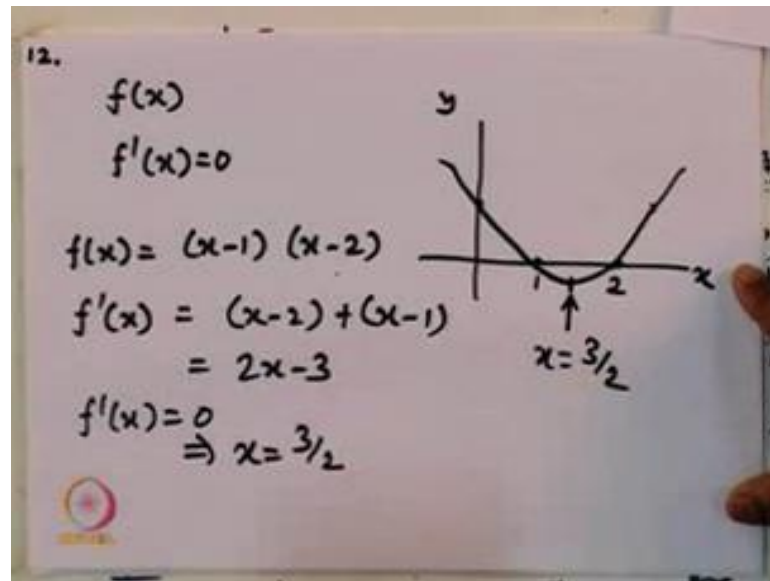 12.
f(x)
f'(x)=0
f(x)= (x-1) (x-2)
f'(x) = (x-2)+(x-1)
= 2x-3
f'(x)=0
⇒ x= 3/2
y
1
2
x
x= 3/2